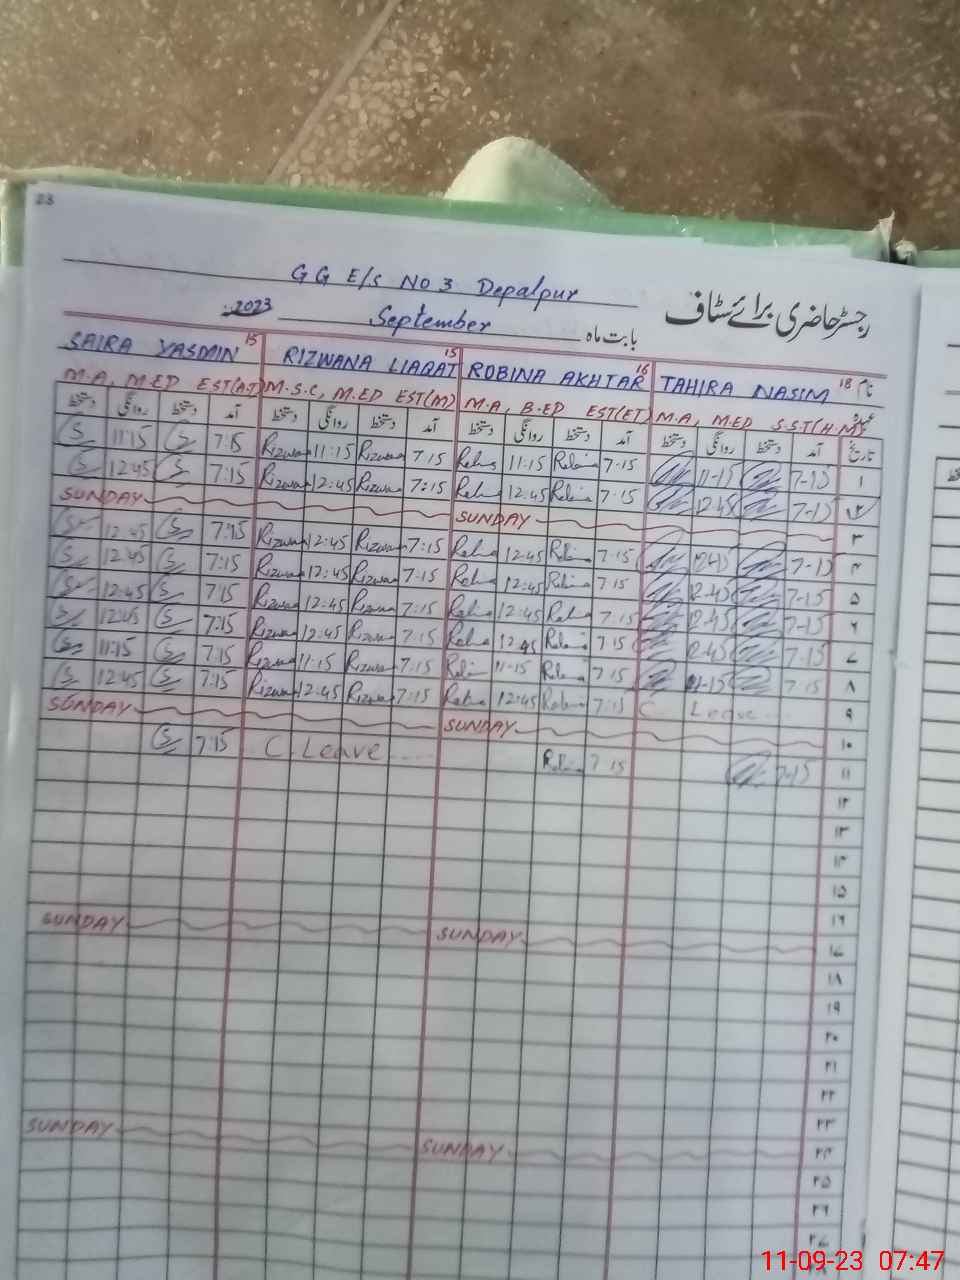 23
GG E/S NO 3 Depalpur
رجسٹر حاضری برائے سٹاف
2023 September بابت ماہ
SAIRA YASMIN 15 RIZWANA LIAQAT 15 ROBINA AKHTAR 16 TAHIRA NASIM 18 نام
M.A, M.ED EST(AT) M.S.C, M.ED EST(M) M.A, B.ED EST(ET) M.A, M.ED S.ST(H.M) عہدہ
دستخط روانگی دستخط آمد دستخط روانگی دستخط آمد دستخط روانگی دستخط آمد دستخط روانگی دستخط آمد تاریخ
S 11:15 S 7:15 Rizwana 11:15 Rizwana 7:15 Robina 11:15 Robina 7-15 11-15 7-15 ۱
S 12:45 S 7:15 Rizwana 12:45 Rizwana 7:15 Robina 12:45 Robina 7-15 12-45 7-15 ۲
SUNDAY SUNDAY ۳
S 12:45 S 7:15 Rizwana 12:45 Rizwana 7:15 Robina 12:45 Robina 7-15 12-45 7-15 ۴
S 12:45 S 7:15 Rizwana 12:45 Rizwana 7:15 Robina 12:45 Robina 7-15 12-45 7-15 ۵
S 12:45 S 7:15 Rizwana 12:45 Rizwana 7:15 Robina 12:45 Robina 7-15 12-45 7-15 ۶
S 12:45 S 7:15 Rizwana 12:45 Rizwana 7:15 Robina 12:45 Robina 7-15 12-45 7-15 ۷
S 11:15 S 7:15 Rizwana 11:15 Rizwana 7:15 Robina 11-15 Robina 7-15 11-15 7-15 ۸
S 12:45 S 7:15 Rizwana 12:45 Rizwana 7:15 Robina 12:45 Robina 7-15 C. Leave ۹
SUNDAY SUNDAY ۱۰
S 7:15 C. Leave Robina 7-15 7-15 ۱۱
۱۲
۱۳
۱۴
۱۵
۱۶
SUNDAY SUNDAY ۱۷
۱۸
۱۹
۲۰
۲۱
۲۲
۲۳
SUNDAY SUNDAY ۲۴
۲۵
۲۶
۲۷
11-09-23 07:47